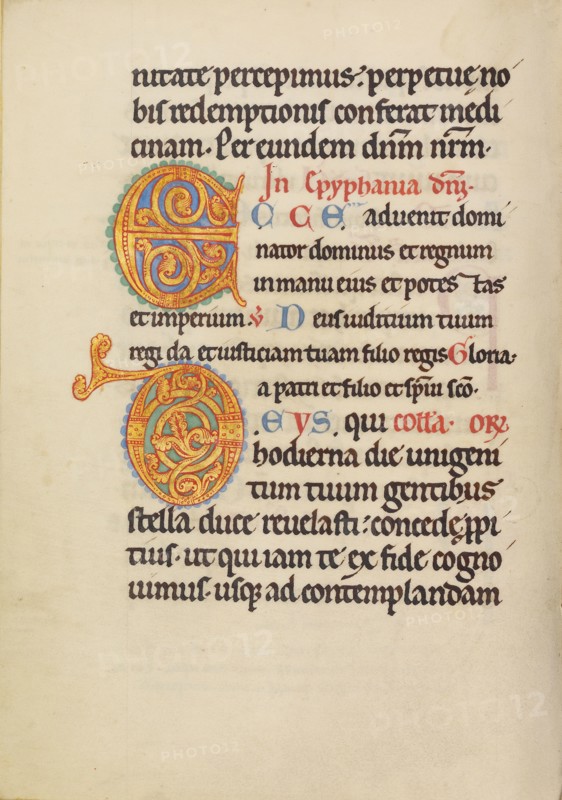 nitate percepimus: perpetuę no
bis redemptionis conferat medi
cinam. Per eundem dn̄m nr̄m.
In Epyphania dn̄i.
E C C E aduenit domi
nator dominus et regnum
in manu eius et potestas
et imperium. V̄ Deus iuditium tuum
regi da et iusticiam tuam filio regis Gloria
a patri et filio et sp̄iu sc̄o.
D EVS, qui coll̄a. OR
hodierna die unigeni
tum tuum gentibus
stella duce reuelasti: concede ꝓpi
tius. ut qui iam te ex fide cogno
uimus. usqꝫ ad contemplandam
PHOTO12